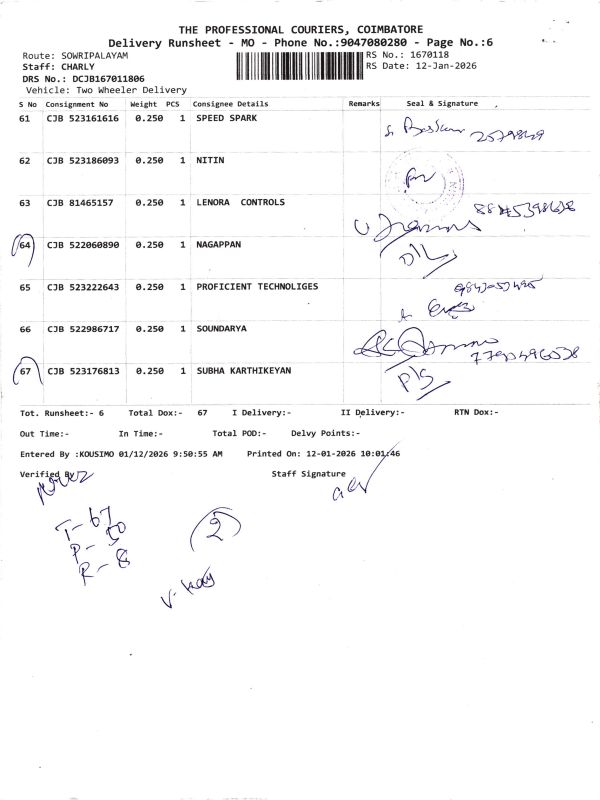 THE PROFESSIONAL COURIERS, COIMBATORE
Delivery Runsheet - MO - Phone No.:9047080280 - Page No.:6
Route: SOWRIPALAYAM RS No.: 1670118
Staff: CHARLY RS Date: 12-Jan-2026
DRS No.: DCJB167011806
Vehicle: Two Wheeler Delivery
S No Consignment No Weight PCS Consignee Details Remarks Seal & Signature
61 CJB 523161616 0.250 1 SPEED SPARK
62 CJB 523186093 0.250 1 NITIN
63 CJB 81465157 0.250 1 LENORA CONTROLS
64 CJB 522060890 0.250 1 NAGAPPAN
65 CJB 523222643 0.250 1 PROFICIENT TECHNOLIGES
66 CJB 522986717 0.250 1 SOUNDARYA
67 CJB 523176813 0.250 1 SUBHA KARTHIKEYAN
Tot. Runsheet:- 6 Total Dox:- 67 I Delivery:- II Delivery:- RTN Dox:-
Out Time:- In Time:- Total POD:- Delvy Points:-
Entered By :KOUSIMO 01/12/2026 9:50:55 AM Printed On: 12-01-2026 10:01:46
Verified By Staff Signature
T- 67
P- 50
R- 8
2